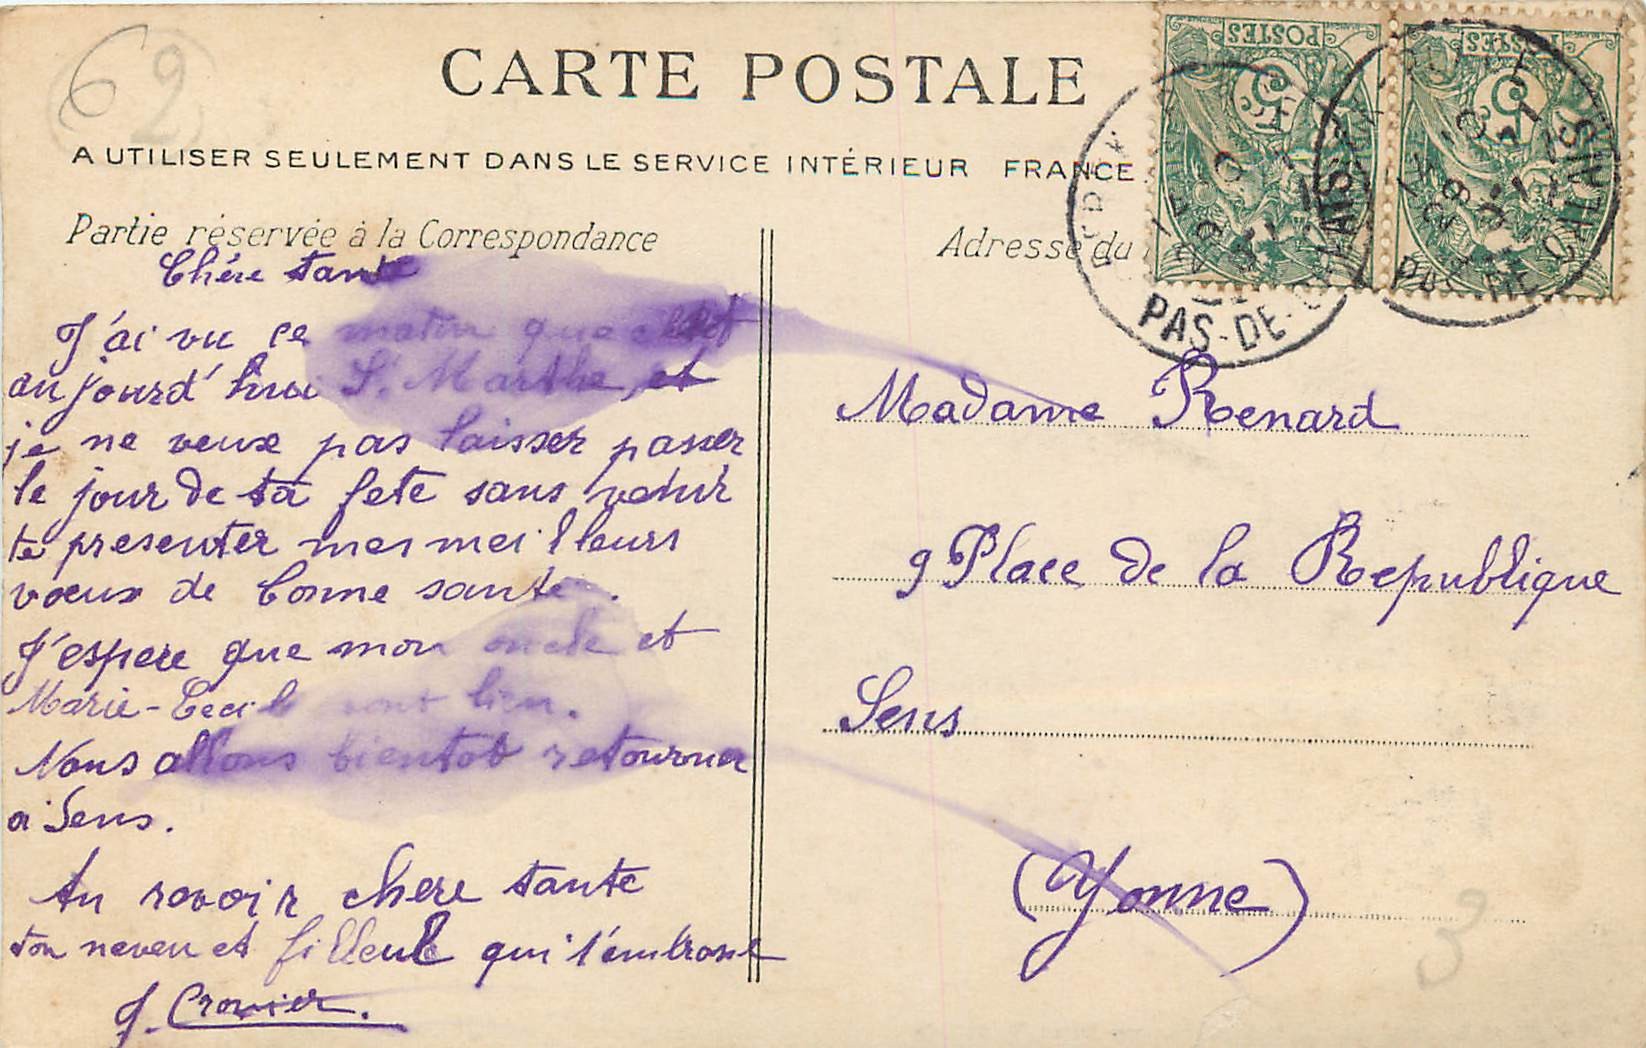 62
CARTE POSTALE
A UTILISER SEULEMENT DANS LE SERVICE INTÉRIEUR FRANCE
Partie réservée à la Correspondance
Chére tante
J'ai vu ce matin que c'etait
aujourd'hui St. Marthe, et
je ne veux pas laisser passer
le jour de ta fete sans venir
te presenter mes meilleurs
vœux de bonne sante.
J'espere que mon oncle et
Marie-Cecile sont bien.
Nous allons bientot retourner
a Sens.
Au revoir chere tante
ton neveu et filleul qui t'embrasse
J. Crovier.
Adresse du
POSTES
5
POSTES
5
PAS-DE-CALAIS
PAS-DE-CALAIS
Madame Renard
9 Place de la Republique
Sens
(Yonne)
3